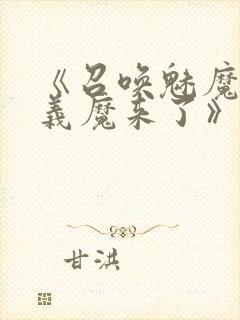 《召唤魅魔
義魔来了》
甘洪